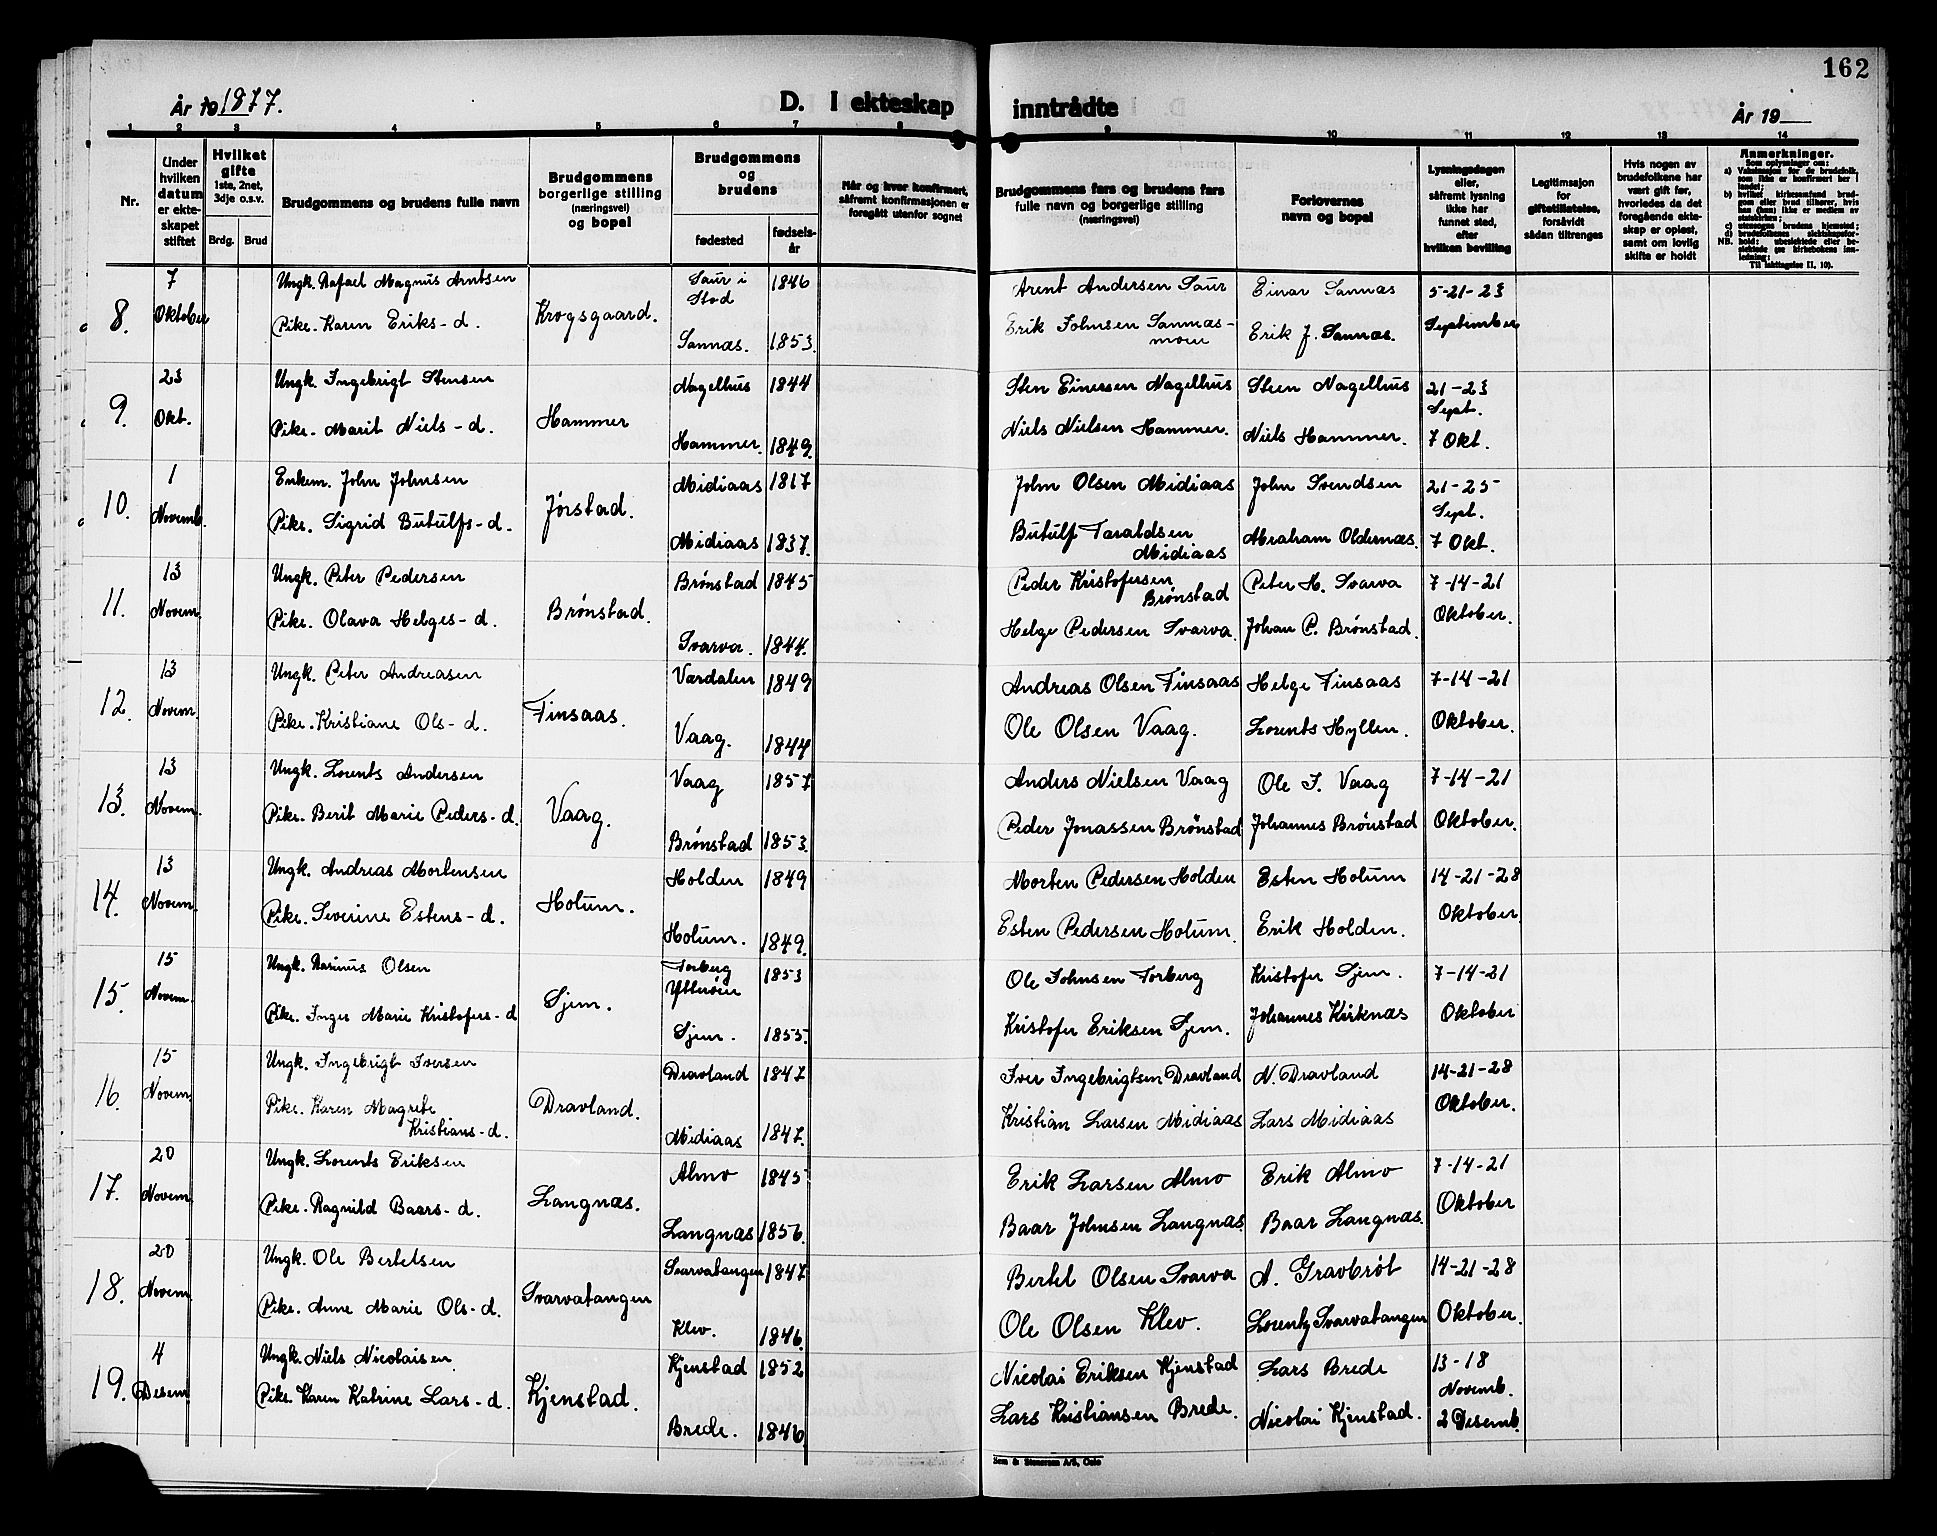 162
År 19 1877.
D. I ekteskap inntrådte
År 19
1 2 3 4 5 6 7 8 9 10 11 12 13 14
Nr.
Under hvilken datum er ekteskapet stiftet
Hvilket gifte 1ste, 2net, 3dje o.s.v.
Brdg. Brud
Brudgommens og brudens fulle navn
Brudgommens borgerlige stilling (næringsvei) og bopel
Brudgommens og brudens
fødested
fødselsår
Når og hvor konfirmert, såfremt konfirmasjonen er foregått utenfor sognet
Brudgommens fars og brudens fars fulle navn og borgerlige stilling (næringsvei)
Forlovernes navn og bopel
Lysningsdagen eller, såfremt lysning ikke har funnet sted, efter hvilken bevilling
Legitimasjon for giftetillatelse, forsåvidt sådan tiltrenges
Hvis nogen av brudefolkene har vært gift før, hvorledes da det foregående ekteskap er opløst, samt om lovlig skifte er holdt
Anmerkninger.
8. 7 Oktober
Ungk. Rafael Magnus Arntsen
Pike. Karen Eriks-d.
Krogsgaard.
Saur i Stod 1846
Sannæs. 1853.
Arent Andersen Saur
Erik Johnsen Sannæs-moen
Einar Sannæs
Erik J. Sannæs.
5-21-23 September
9. 23 Okt.
Ungk. Ingebrigt Stensen
Pike. Marit Niels-d.
Hammer
Nagelhus 1844
Hammer. 1849.
Sten Einersen Nagelhus
Niels Nielsen Hammer.
Steen Nagelhus
Niels Hammer.
21-23 Sept.
7 Okt.
10. 1 Novemb.
Enkem. John Johnsen
Pike. Sigrid Butulfs-d.
Jørstad.
Midiaas 1817
Midiaas 1837.
John Olsen Midiaas
Butulf Taraldsen Midiaas
John Svendsen
Abraham Oldernæs.
21-23- Sept.
7 Okt.
11. 13 Novem.
Ungk. Peter Pedersen
Pike. Olava Helges-d.
Brønstad.
Brønstad 1845
Svarva. 1844.
Peder Kristofersen Brønstad
Helge Pedersen Svarva.
Peter H. Svarva
Johan P. Brønstad.
7-14-21 Oktober.
12. 13 Novem.
Ungk. Peter Andreasen
Pike. Kristiane Ols-d.
Finsaas.
Værdalen 1849
Vaag. 1844
Andreas Olsen Finsaas
Ole Olsen Vaag.
Helge Finsaas
Lorents Hyllen.
7-14-21 Oktober.
13. 13 Novem.
Ungk. Lorents Andersen
Pike. Berit Marie Peders-d.
Vaag.
Vaag 1857
Brønstad 1853.
Anders Nielsen Vaag
Peder Jonassen Brønstad
Ole I. Vaag
Johannes Brønstad
7-14-21 Oktober.
14. 13 Novem.
Ungk. Andreas Mortensen
Pike. Severine Estens-d.
Holum.
Holden 1849
Holum. 1849.
Morten Pedersen Holden
Esten Pedersen Holum.
Esten Holum
Erik Holden.
14-21-28 Oktober
15. 15 Novem.
Ungk. Rasmus Olsen
Pike. Inger Marie Kristofers-d
Gjem.
Torberg Ytterøen 1853
Gjem. 1855.
Ole Johnsen Torberg
Kristofer Eriksen Gjem.
Kristofer Gjem.
Johannes Kirknæs
7-14-21 Oktober
16. 15 Novem.
Ungk. Ingebrigt Iversen
Pike. Karen Magrete Kristians-d.
Dravland.
Dravland 1847
Midiaas 1847.
Iver Ingebrigtsen Dravland
Kristian Larsen Midiaas
N. Dravland
Lars Midiaas
14-21-28 Oktober.
17. 20 Novem.
Ungk. Lorents Eriksen
Pike. Ragnild Baars-d.
Langnæs.
Almo 1845
Langnæs 1856.
Erik Larsen Almo
Baar Johnsen Langnæs.
Erik Almo
Baar Langnæs.
7-14-21 Oktober
18. 20 Novem.
Ungk. Ole Bertelsen
Pike. Anne Marie Ols-d.
Svarvatangen
Svarvatangen 1847
Klev. 1846.
Bertel Olsen Svarva
Ole Olsen Klev.
A. Gravbrøt
Lorentz Svarvatangen
14-21-28 Oktober.
19. 4 Desem.
Ungk. Niels Nicolaisen
Pike. Karen Katrine Lars-d.
Kjenstad.
Kjenstad 1852
Brede. 1846.
Nicolai Eriksen Kjenstad
Lars Kristiansen Brede.
Lars Brede
Nicolai Kjenstad.
13-18 Novemb.
2 Desemb.
Sem & Stenersen A/S, Oslo